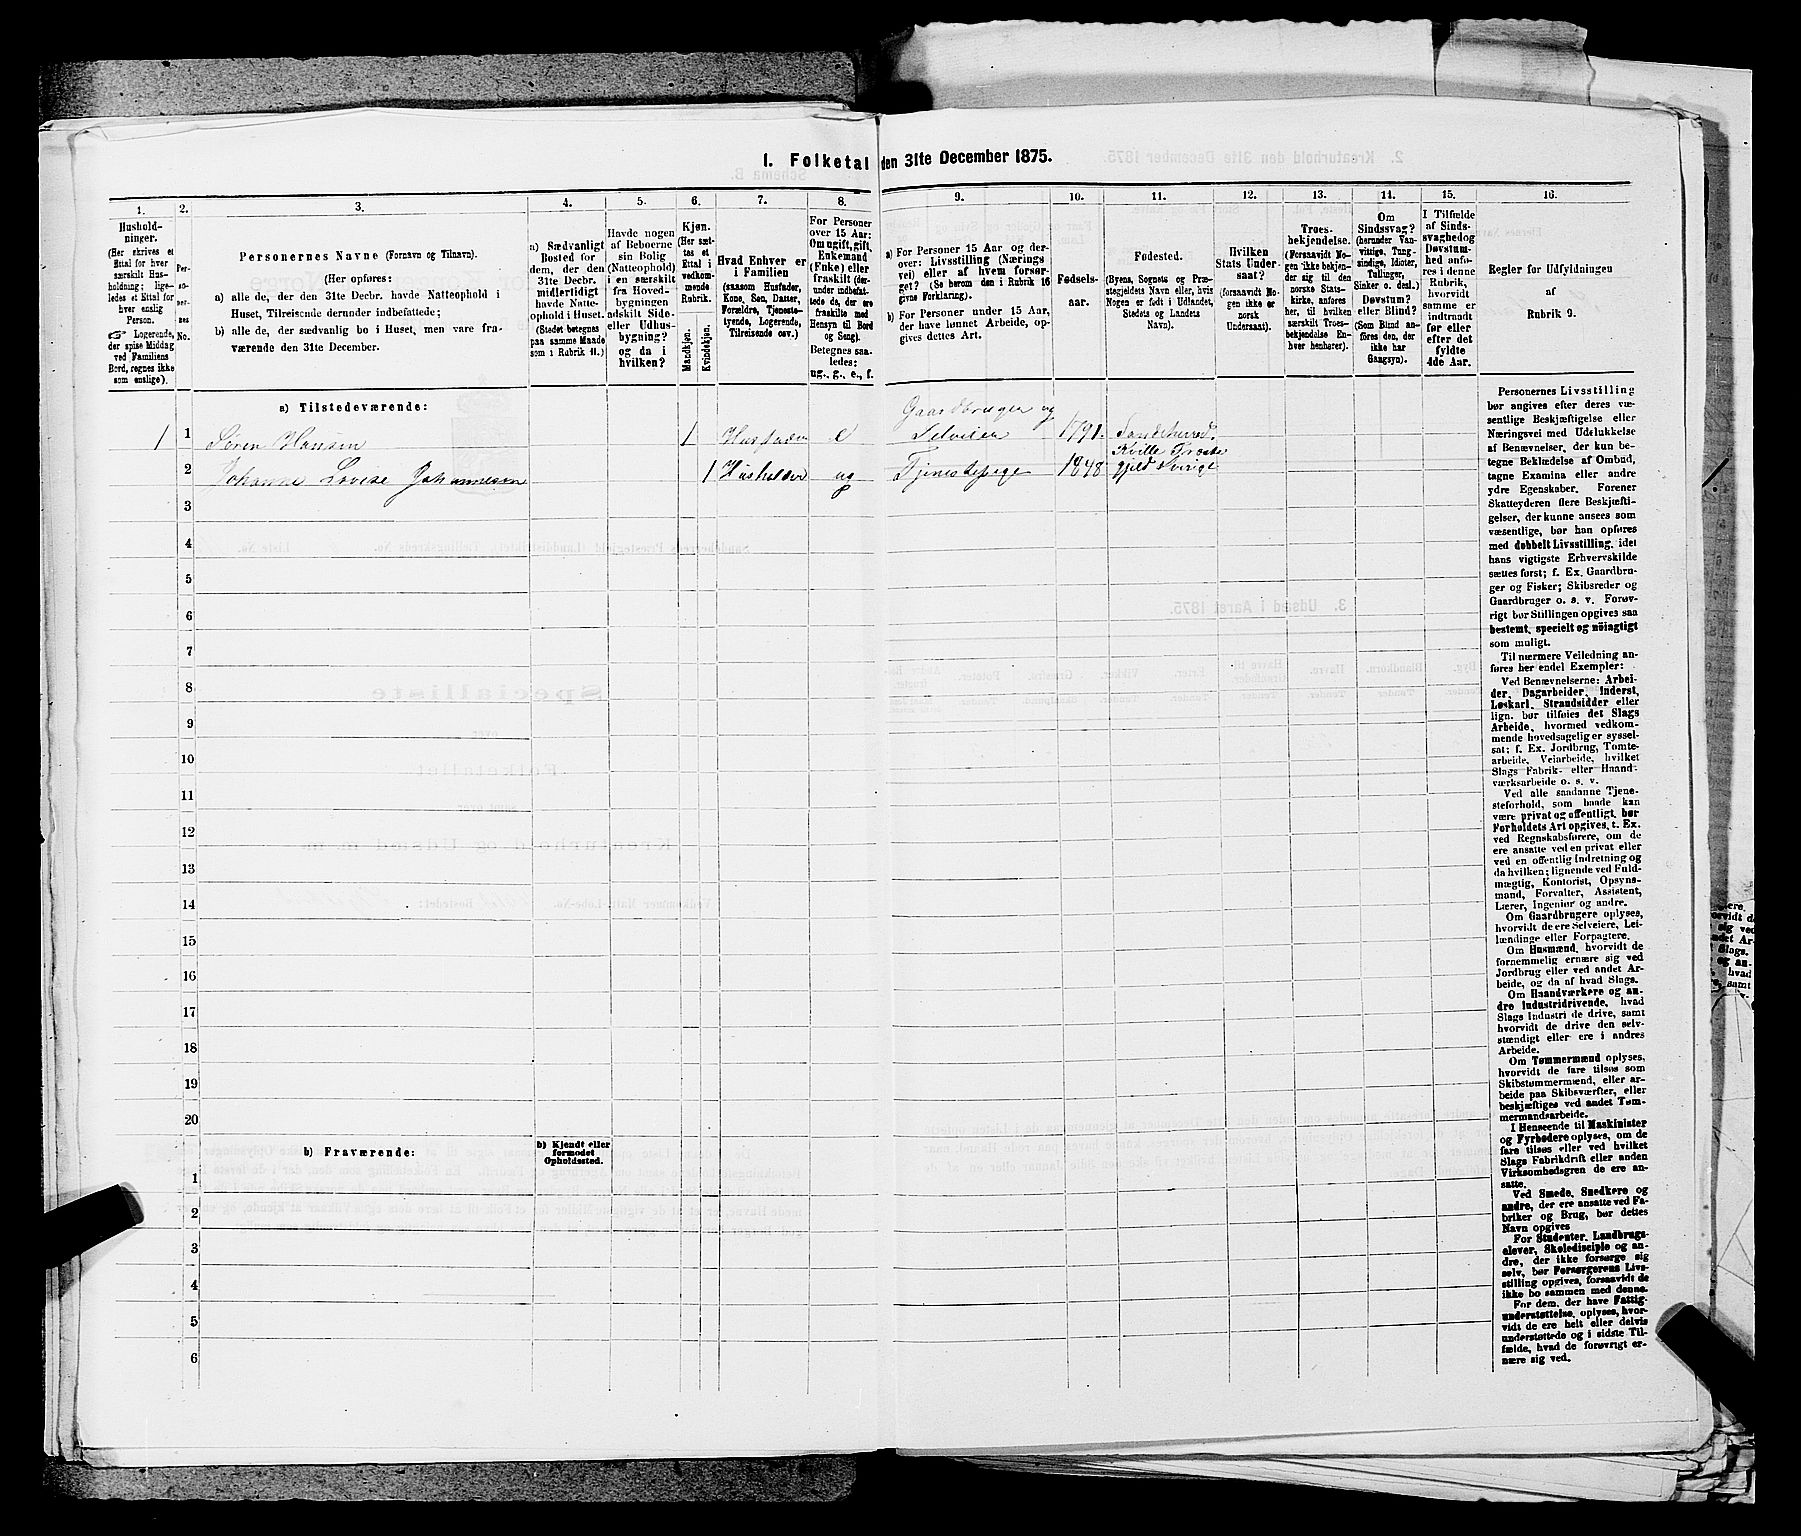 1. Folketal den 31te December 1875.
1.
2.
3.
4.
5.
6.
7.
8.
9.
10.
11.
12.
13.
14.
15.
16.
Hushold-
ninger.
(Her skrives et
Ettal for hver
særskilt Hus-
holdning; lige-
ledes et Ettal for
hver enslig
Person.
Logerende,
der spise Middag
ved Familiens
Bord, regnes ikke
som enslige).
Per-
so-
ner-
nes
No.
Personernes Navne (Fornavn og Tilnavn).
(Her opføres:
a) alle de, der den 31te Decbr. havde Natteophold i
Huset, Tilreisende derunder indbefattede;
b) alle de, der sædvanlig bo i Huset, men vare fra-
værende den 31te December.
a) Sædvanligt
Bosted for
dem, der den
31te Decbr.
midlertidigt
havde Natte-
ophold i Huset.
(Stedet betegnes
paa samme Maade
som i Rubrik 11.)
Havde nogen
af Beboerne
sin Bolig
(Natteophold)
i en særskilt
fra Hoved-
bygningen
adskilt Side-
eller Udhus-
bygning?
og da i
hvilken?
Kjøn.
(Her sæt-
tes et
Ettal i
vedkom-
mende
Rubrik.
Mandkjøn.
Kvindekjøn.
Hvad Enhver er
i Familien
(saasom Husfader,
Kone, Søn, Datter,
Forældre, Tjeneste-
tyende, Logerende,
Tilreisende osv.)
For Personer
over 15 Aar:
Om ugift, gift,
Enkemand
(Enke) eller
fraskilt (der-
under indbefat-
tede de, der ere
fraskilte med
Hensyn til Bord
og Seng).
Betegnes saa-
ledes:
ug., g., e., f.
a) For Personer 15 Aar og der-
over: Livsstilling (Nærings
vei) eller af hvem forsør-
get? (Se herom den i Rubrik 16
givne Forklaring).
b) For Personer under 15 Aar,
der have lønnet Arbeide, op-
gives dettes Art.
Fødsels-
aar.
Fødested.
(Byens, Sognets og Præ-
stegjeldets Navn eller, hvis
Nogen er født i Udlandet,
Stedets og Landets
Navn).
Hvilken
Stats Under-
saat?
(forsaavidt No-
gen ikke er
norsk
Undersaat).
Troes-
bekjendelse.
(Forsaavidt No-
gen ikke bekjen-
der sig til den
norske Stats-
kirke, anføres
her, til hvilken
særskilt Troes-
bekjendelse En-
hver henhører).
Om
Sindssvag?
(herunder Van-
vittige, Tung-
sindige, Idioter,
Tullinger,
Sinker o. desl.)
Døvstum?
eller Blind?
(Som Blind an-
føres den, der
ikke har
Gangsyn).
I Tilfælde
af Sinds-
svaghed og
Døvstum-
hed anfø-
res i denne
Rubrik,
hvorvidt
samme er
indtraadt
før eller
efter det
fyldte
4de Aar.
Regler for Udfyldningen
af
Rubrik 9.
a) Tilstedeværende:
1 1 Søren Hansen 1 Husfader e Gaardbruger og
Selveier 1791. Sandeherred.
2 Johanne Lovise Johannesen 1 Husholder ug Tjenestepige 1848 Kville Præste
gjeld Sverige
3
4
5
6
7
8
9
10
11
12
13
14
15
16
17
18
19
20
b) Fraværende:
b) Kjendt eller
formodet
Opholdssted.
1
2
3
4
5
6
Personernes Livsstilling
bør angives efter deres væ-
sentlige Beskjæftigelse eller
Næringsvei med Udelukkelse
af Benævnelser, der kun be-
tegne Beklædelse af Ombud,
tagne Examina eller andre
ydre Egenskaber. Forener
Skatteyderen flere Beskjæfti-
gelser, der kunne ansees som
væsentlige, bør han opføres
med dobbelt Livsstilling, idet
hans vigtigste Erhvervskilde
sættes først; f. Ex. Gaardbru-
ger og Fisker; Skibsreder og
Gaardbruger o. s. v. Forøv-
rigt bør Stillingen opgives saa
bestemt, specielt og nöiagtigt
som muligt.
Til nærmere Veiledning an-
føres her endel Exempler:
Ved Benævnelserne: Arbei-
der, Dagarbeider, Inderst,
Løskarl, Strandsidder eller
lign. bør tilføies det Slags
Arbeide, hvormed vedkom-
mende hovedsagelig er syssel-
sat; f. Ex. Jordbrug, Tomte-
arbeide, Veiarbeide, hvilket
Slags Fabrik- eller Haand-
værksarbeide o. s. v.
Ved alle saadanne Tjene-
steforhold, som baade kan
være privat og offentligt, bør
Forholdets Art opgives, t. Ex.
ved Regnskabsførere, om de
ere ansatte ved en privat eller
ved en offentlig Indretning og
da hvilken; lignende ved Fuld-
mægtig, Kontorist, Opsyns-
mand, Forvalter, Assistent,
Lærer, Ingeniør og andre.
Om Gaardbrugere oplyses,
hvorvidt de ere Selveiere, Lei-
lændinge eller Forpagtere.
Om Husmænd, hvorvidt de
fornemmelig ernære sig ved
Jordbrug eller ved andet Ar-
beide, og da af hvad Slags.
Om Haandværkere og an-
dre Industridrivende, hvad
Slags Industri de drive, samt
hvorvidt de drive den selv-
stændigt eller ere i andres
Arbeide.
Om Tømmermænd oplyses,
hvorvidt de fare tilsøs som
Skibstømmermænd, eller ar-
beide paa Skibsværfter, eller
beskjæftiges ved andet Tøm-
mermandsarbeide.
I Henseende til Maskinister
og Fyrbødere oplyses, om de
fare tilsøs eller ved hvilket
Slags Fabrikdrift eller anden
Virksomhedsgren de ere an-
satte.
Ved Smede, Snedkere og
andre, der ere ansatte ved Fa-
briker og Brug, bør dettes
Navn opgives
For Studenter, Landbrugs-
elever, Skoledisciple og an-
dre, der ikke forsørge sig
selv, bør Forsørgerens Livs-
stilling opgives, forsaavidt de
ikke bo sammen med denne.
For dem, der have Fattig-
understøttelse, oplyses, hvor-
vidt de ere helt eller delvis
understøttede og i sidste Til-
fælde, hvad de forøvrigt er-
nære sig ved.